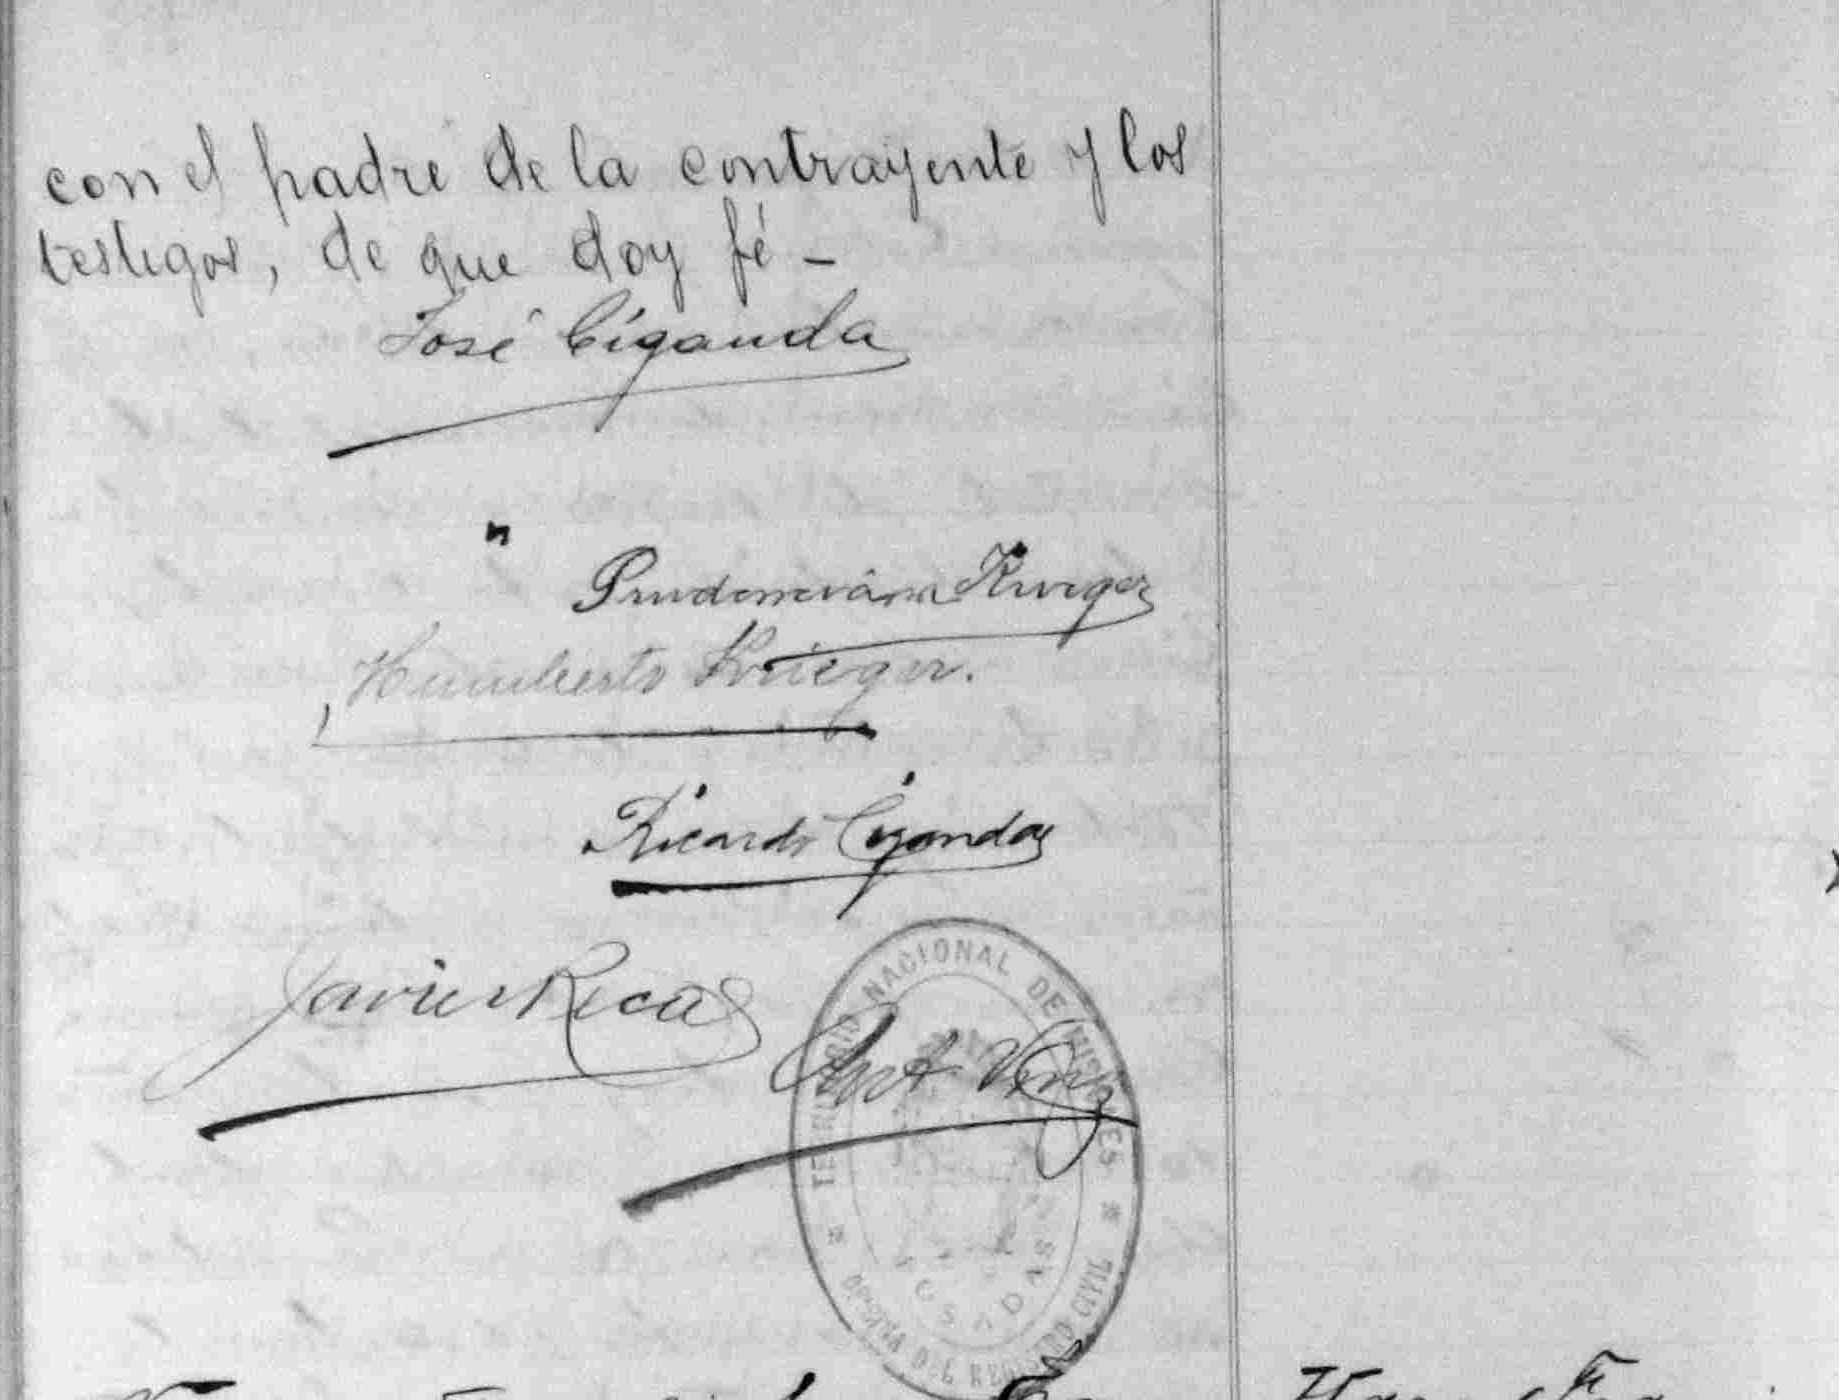 con el padre de la contrayente y los
testigos, de que doy fé -
José Ciganda
Krieger
Humberto Krieger.
Ricardo Ciganda
Javier Recas
TERRITORIO NACIONAL DE MISIONES
POSADAS
DEL REGISTRO CIVIL